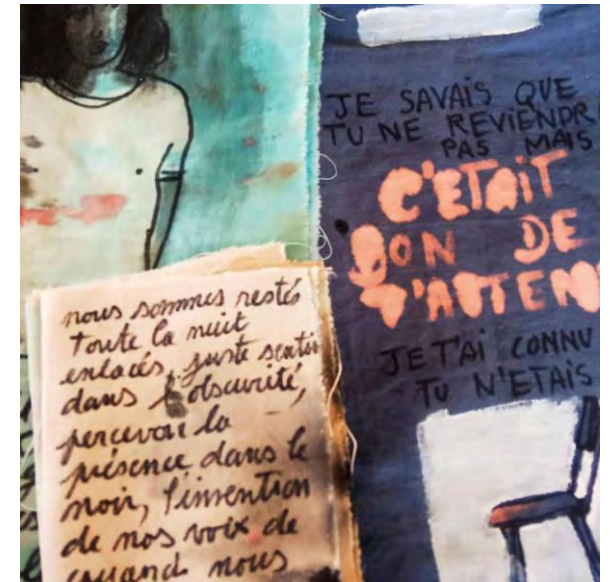 JE SAVAIS QUE
TU NE REVIENDR
PAS MAIS
C'ETAIT
BON DE
T'ATTEN
JE T'AI CONNU
TU N'ETAIS
nous sommes restés
toute la nuit
enlacés, juste sentir
dans l'obscurité,
percevoir la
présence dans le
noir, l'invention
de nos voix de
quand nous